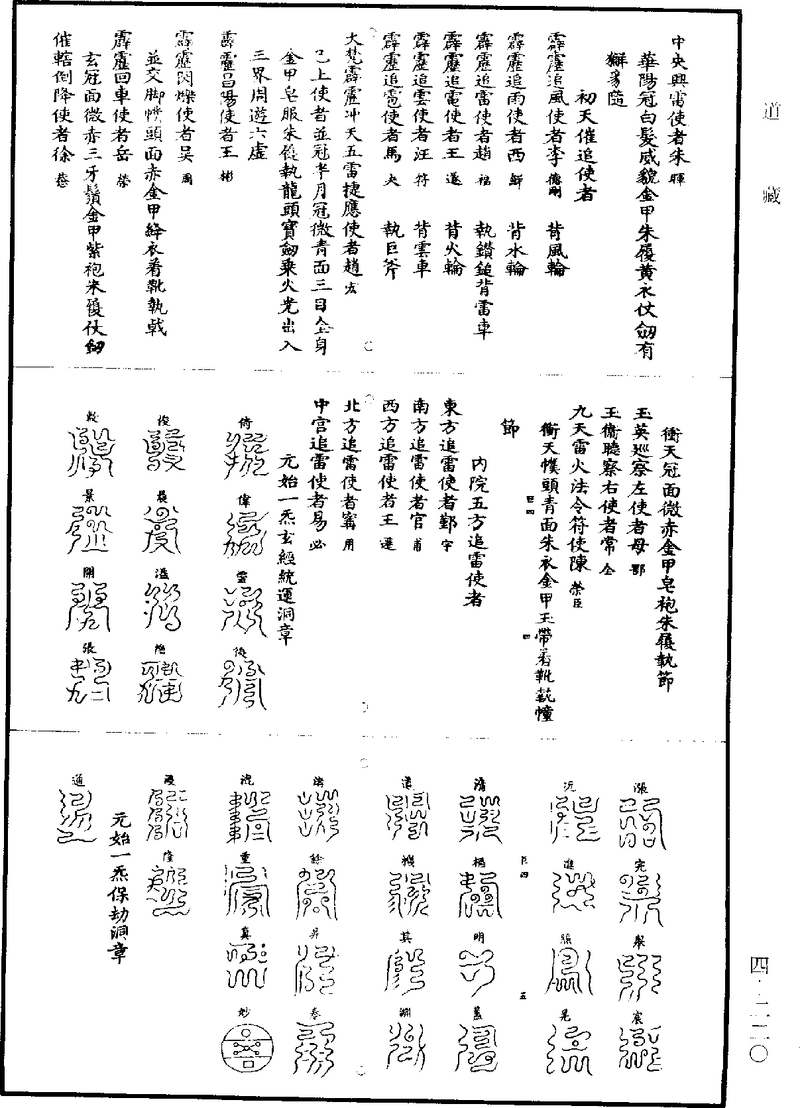 道藏
中央興雷使者朱暉
華陽冠白髮威貌金甲朱履黃衣仗劒有
獬豸隨
初天催追使者
霹靂追風使者李 背風輪
霹靂追雨使者西鮮 背水輪
霹靂追雷使者趙福 執鑽鎚背雷車
霹靂追電使者王遂 背火輪
霹靂追雲使者汪符 背雲車
霹靂追雹使者馬夬 執巨斧
大梵霹靂冲天五雷捷應使者趙宏
已上使者並冠半月冠微青面三目全身
金甲皂服朱履執龍頭寶劒乗火光出入
三界周遊六虛
霹靂昌陽使者王彬
霹靂閃爍使者吴周
並交脚幞頭面赤金甲絳衣着靴執戟
霹靂回車使者岳榮
玄冠面微赤三牙鬚金甲紫袍朱履仗劒
催轄倒降使者徐
衝天冠面微赤金甲皂袍朱履執節
玉英廵察左使者母鄂
玉衛聽察右使者常全
九天雷火法令符使陳榮臣
衝天幞頭青面朱衣金甲玉帶着靴執幢
節
臣四
四
内院五方追雷使者
東方追雷使者鄞宇
南方追雷使者官甫
西方追雷使者王遷
北方追雷使者寗用
中宫追雷使者易必
元始一炁玄經統運洞章
倚
偉
靈
俊
俊
晨
溢
陁
敷
景
開
張
張
完
舉
宸
沉
進
晃
清
楊
明
臣四
五
遣
機
其
淵
餘
昇
泰
沌
重
真
妙
凌
隆
通
元始一炁保劫洞章
四·二二〇